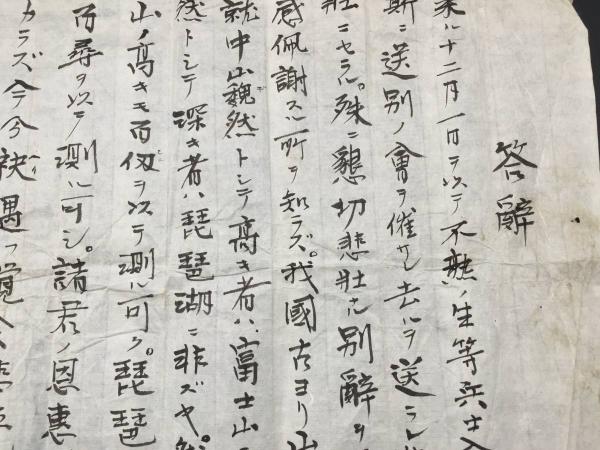 答辭
来ル十二月一日ヲ以テ不熟ノ生等兵士
斯ニ送別ノ會ヲ催サレ去ルヲ送ラレ
壯ニセラル。殊ニ懇切悲壮ナル別辭ヲ
感佩謝スル所ヲ知ラズ。我國古ヨリ山
就中山巍然トシテ高キ者ハ富士山
然トシテ深キ者ハ琵琶湖ニ非ズヤ。
山ノ高キモ百仭ヲ以テ測ル可ク。琵琶
百尋ヲ以テ測ル可シ。諸君ノ恩惠
カラズ今今袂遇フ